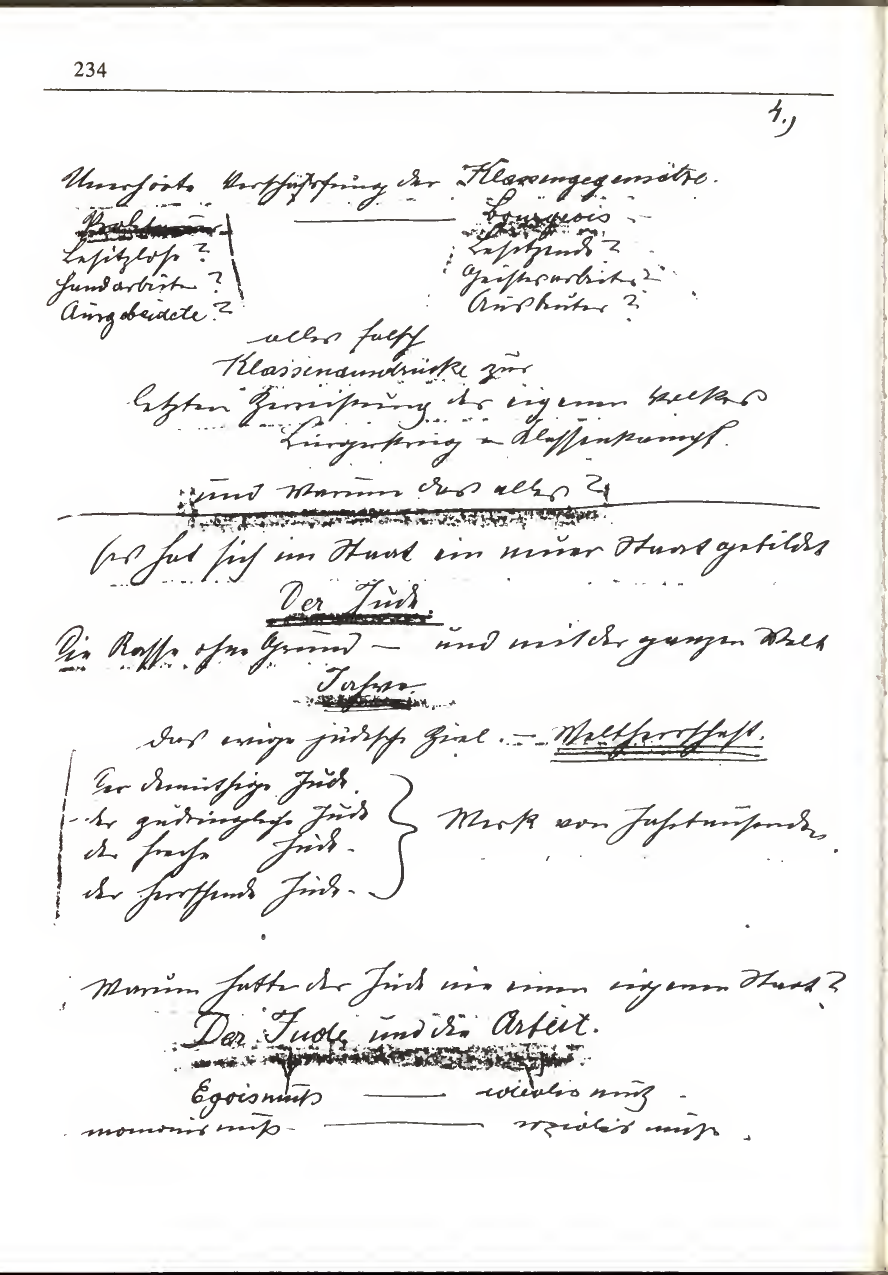 234
4.)
Unerhörte Verschärfung der Klassengegensätze.
Proletarier Bourgeois
Besitzlose? Besitzende?
Handarbeiter? Geistesarbeiter?
Ausgebeutete? Ausbeuter?
alles falsch
Klassenausdrücke zur
letzten Zerreißung des eigenen Volkes
Bürgerkrieg Klassenkampf.
und warum das alles?
Es hat sich im Staat ein neuer Staat gebildet
Der Jude.
Die Rasse ohne Grund – und mit der ganzen Welt
das ewige jüdische Ziel. – Weltherrschaft.
Der demüthige Jude.
der zudringliche Jude Werk von Jahrtausenden.
der freche Jude.
der herrschende Jude.
Warum hatte der Jude nie einen eigenen Staat?
Der Jude und die Arbeit.
Egoismuß — idealismuß
mamonismuß — sozialismuß.